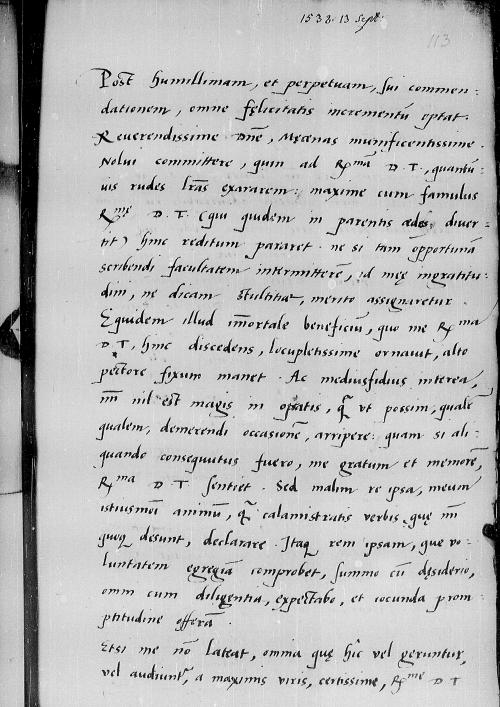 1538. 13 Sept:
113
Post humillimam, et perpetuam, sui commen:
dationem, omne fęlicitatis incrementū optat.
Reverendissime Dnē, Męcenas munificentissime.
Nolui committere, quin ad Rma D. T., quantū:
uis rudes lrās exararem: maxime cum famulus
Rmę D. T. (qui quidem in parentis ædes diver:
tit) hinc reditum pararet. ne si tam opportunā
scribendi facultatem intermitterē, id meę ingratitu:
dini, ne dicam stultitiæ, merito assignaretur.
Equidem illud īmortale beneficiū, quo me Rma
D. T. hinc discedens, locupletissime ornavit, alto
pectore fixum manet. Ac mediusfidius interea,
mī nil est magis in optatis, q̄ vt possim, qualē
qualem, demerendi occasionē, arripere: quam si ali:
quando consequutus fuero, me gratum et memorē,
Rma D T sentiet. Sed malim re ipsa, meum
istiusmōi animū, q̄ calamistratis verbis, quę mī
quoq desunt, declarare. Itaq rem ipsam, que vo:
luntatem egregiā comprobet, summo cū dęsiderio,
omni cum diligentia, expectabo, et iocunda prom
ptitudine offerā.
Etsi me nō lateat, omnia quę hīc vel geruntur,
vel audiunt', a maximis viris, certissime, Rmę D T